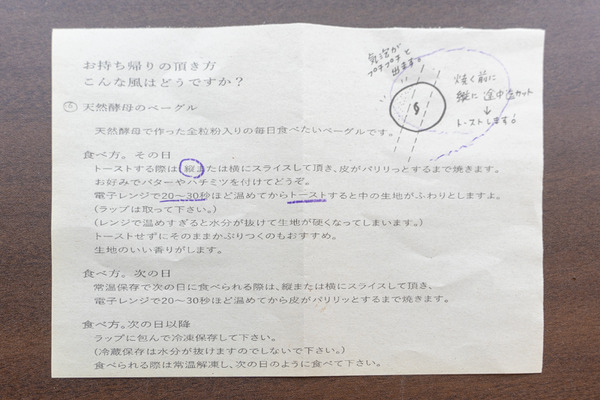 お持ち帰りの頂き方
こんな風はどうですか？
⑥ 天然酵母のベーグル
天然酵母で作った全粒粉入りの毎日食べたいベーグルです。
食べ方。その日
トーストする際は縦または横にスライスして頂き、皮がパリリっとするまで焼きます。
お好みでバターやハチミツを付けてどうぞ。
電子レンジで20～30秒ほど温めてからトーストすると中の生地がふわりとしますよ。
(ラップは取って下さい。)
(レンジで温めすぎると水分が抜けて生地が硬くなってしまいます。)
トーストせずにそのままかぶりつくのもおすすめ。
生地のいい香りがします。
食べ方。次の日
常温保存で次の日に食べられる際は、縦または横にスライスして頂き、
電子レンジで20～30秒ほど温めてから皮がパリリッとするまで焼きます。
食べ方。次の日以降
ラップに包んで冷凍保存して下さい。
(冷蔵保存は水分が抜けますのでしないで下さい。)
食べられる際は常温解凍し、次の日のように食べて下さい。
気泡が
プチプチと
出ます。
焼く前に
縦に 途中迄カット
↓
トーストします!